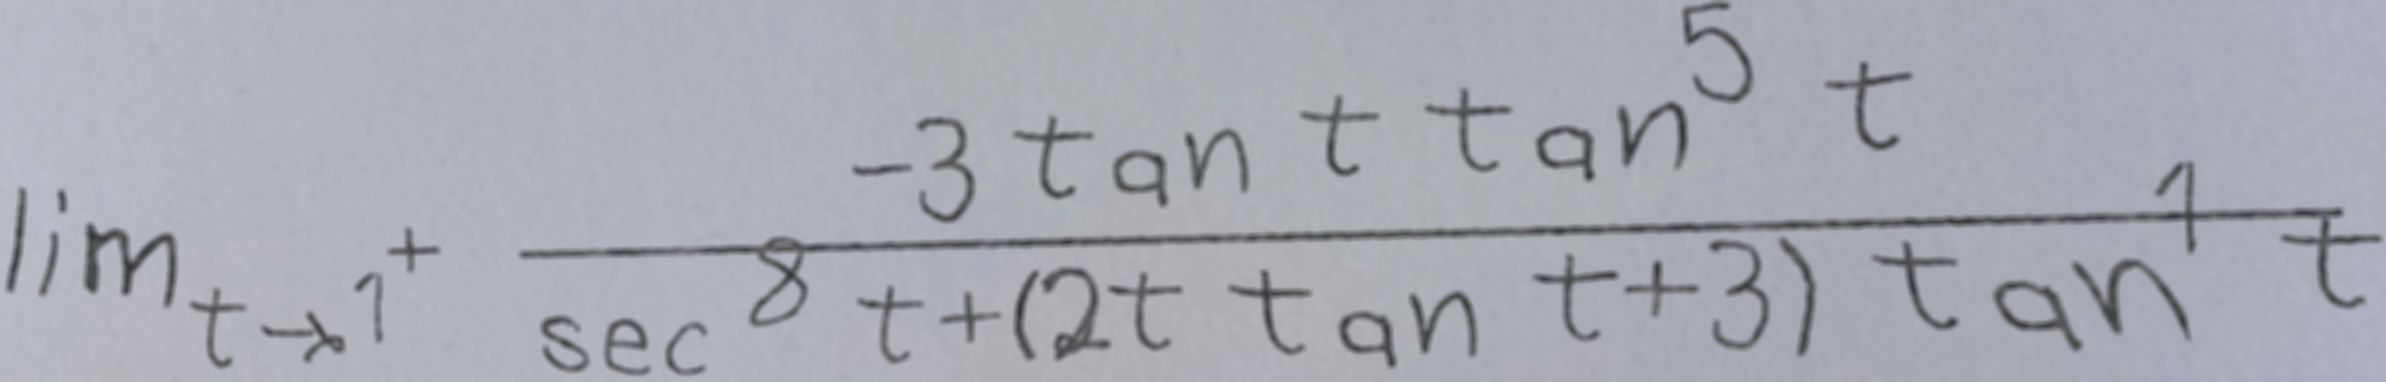 \lim_{t \to 1^+} \frac{-3 \tan t \tan^5 t}{\sec^8 t + (2t \tan t + 3) \tan^1 t}